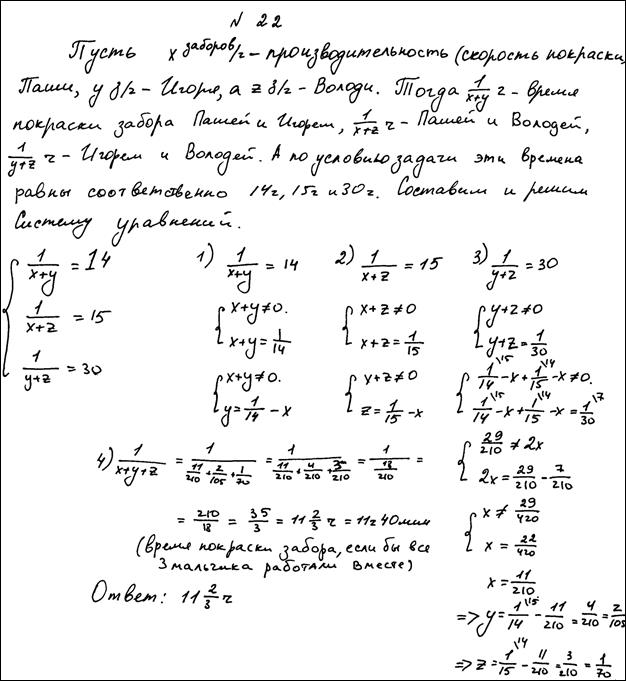 N 22
Пусть x заборов/ч – производительность (скорость покраски)
Паши, y з/ч – Игоря, а z з/ч – Володи. Тогда 1/(x+y) ч – время
покраски забора Пашей и Игорем, 1/(x+z) ч – Пашей и Володей,
1/(y+z) ч – Игорем и Володей. А по условию задачи эти времена
равны соответственно 14ч, 15ч и 30ч. Составим и решим
Систему уравнений.
{ 1/(x+y) = 14
1/(x+z) = 15
1/(y+z) = 30
1) 1/(x+y) = 14
{ x+y≠0.
x+y = 1/14
{ x+y≠0.
y = 1/14 - x
2) 1/(x+z) = 15
{ x+z≠0
x+z = 1/15
{ x+z≠0
z = 1/15 - x
3) 1/(y+z) = 30
{ y+z≠0
y+z = 1/30
{ 1/14 \15 - x + 1/15 \14 - x ≠ 0.
1/14 \15 - x + 1/15 \14 - x = 1/30 \7
{ 29/210 ≠ 2x
2x = 29/210 - 7/210
{ x ≠ 29/420
x = 22/420
x = 11/210
=> y = 1/14 \15 - 11/210 = 4/210 = 2/105
=> z = 1/15 \14 - 11/210 = 3/210 = 1/70
4) 1/(x+y+z) = 1/(11/210 + 2/105 + 1/70) = 1/(11/210 + 4/210 + 3/210) = 1/(18/210) =
= 210/18 = 35/3 = 11 2/3 ч = 11ч 40мин
(время покраски забора, если бы все
3 мальчика работали вместе)
Ответ: 11 2/3 ч